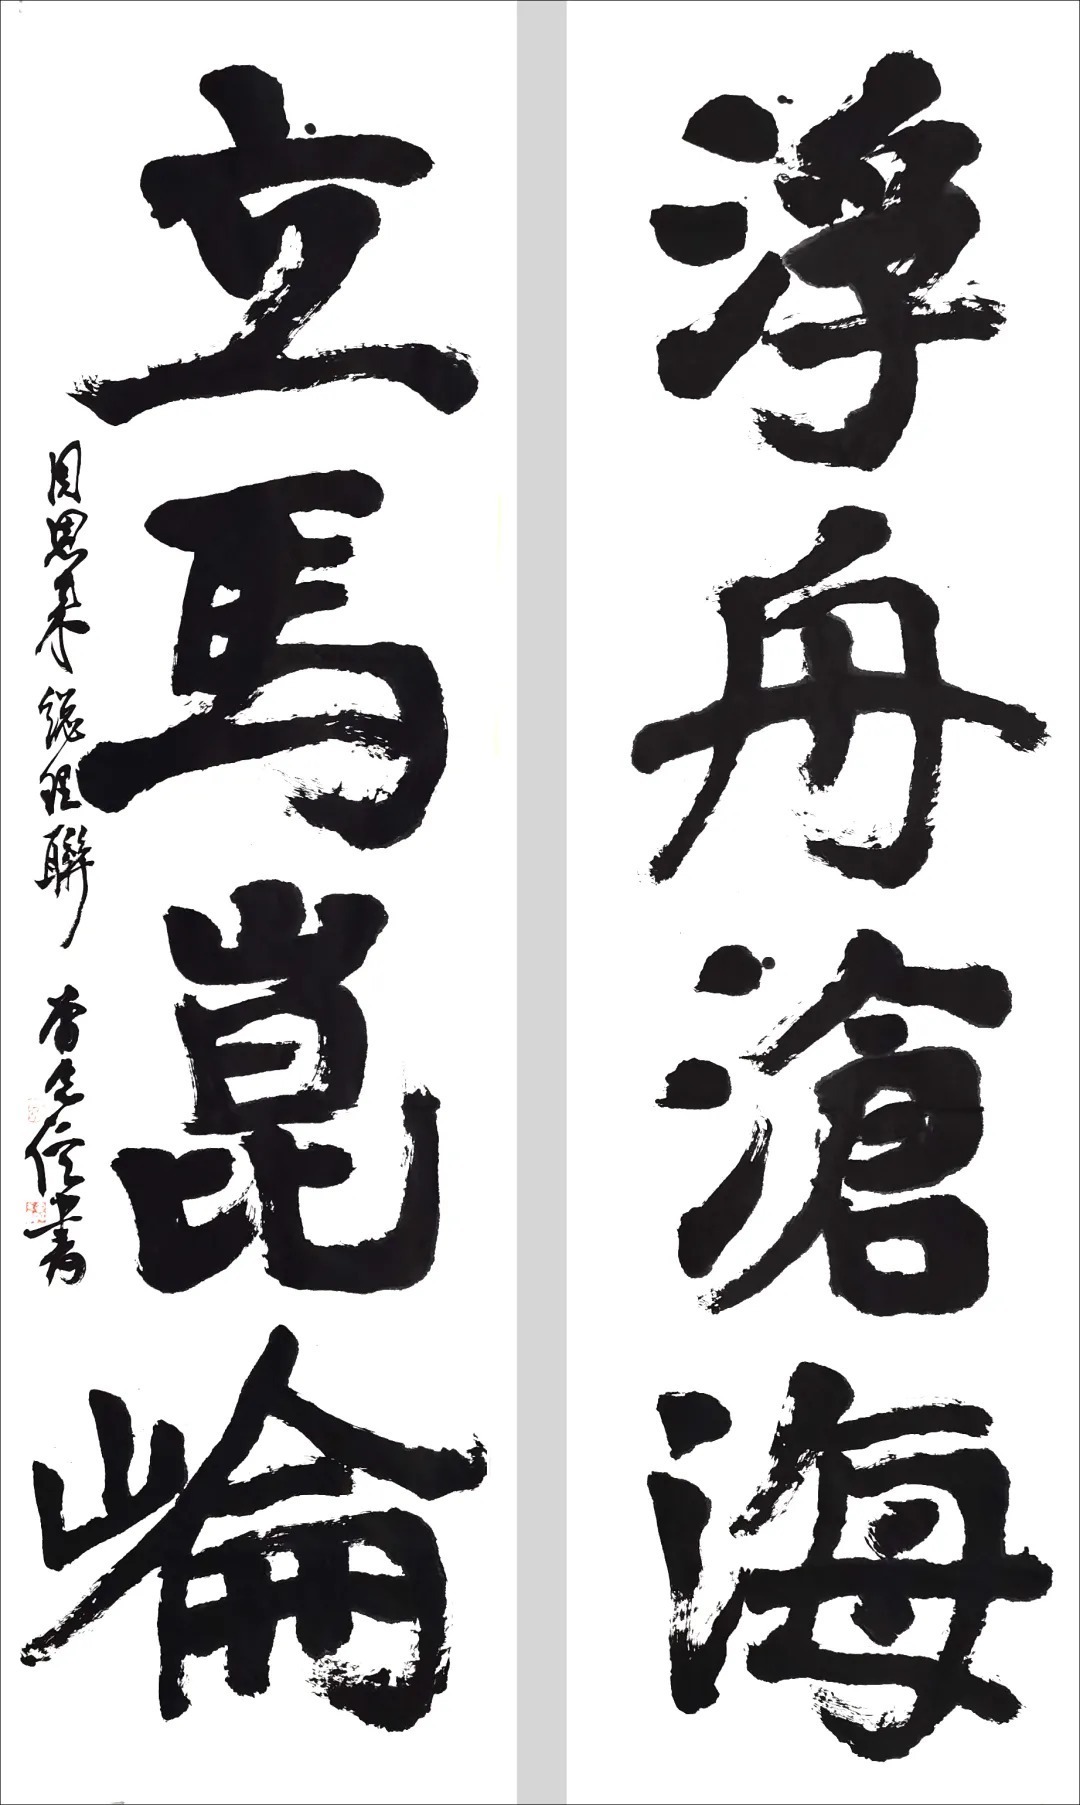 浮舟滄海
立馬崑崙
周恩来總理聯 李它信書